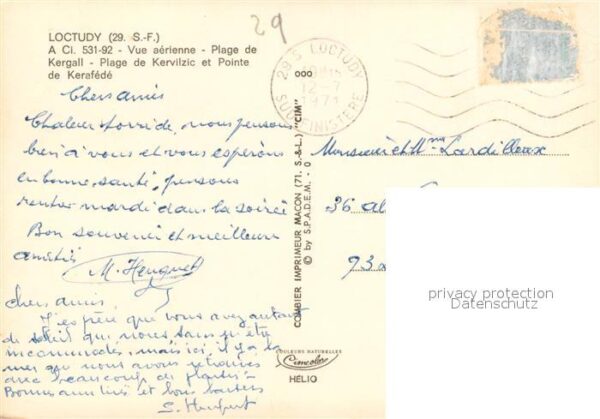 29
LOCTUDY (29. S.-F.)
A Ci. 531-92 - Vue aérienne - Plage de
Kergall - Plage de Kervilzic et Pointe
de Kerafédé
29 S LOCTUDY
12-7
1971
SUD-FINISTERE
Chers amis
Chaleur torride, nous pensons
bien à vous et vous espérons
en bonne santé, pensons
rentrer mardi dans la soirée
Bon souvenir et meilleures
amitiés
M. Huguet
Chers amis
J'espère que vous avez autant
de soleil qui nous sans être
incommodés, mais ici, il y a la
mer que nous avons retrouvée
avec beaucoup de plaisir
Bonnes amitiés et bons baisers
COMBIER IMPRIMEUR MACON (71. S.-&-L.) "CIM"
© by S.P.A.D.E.M. - O
COULEURS NATURELLES
Cimcolor
HÉLIO
Monsieur et Mme Lardilleux
36
93
privacy protection
Datenschutz